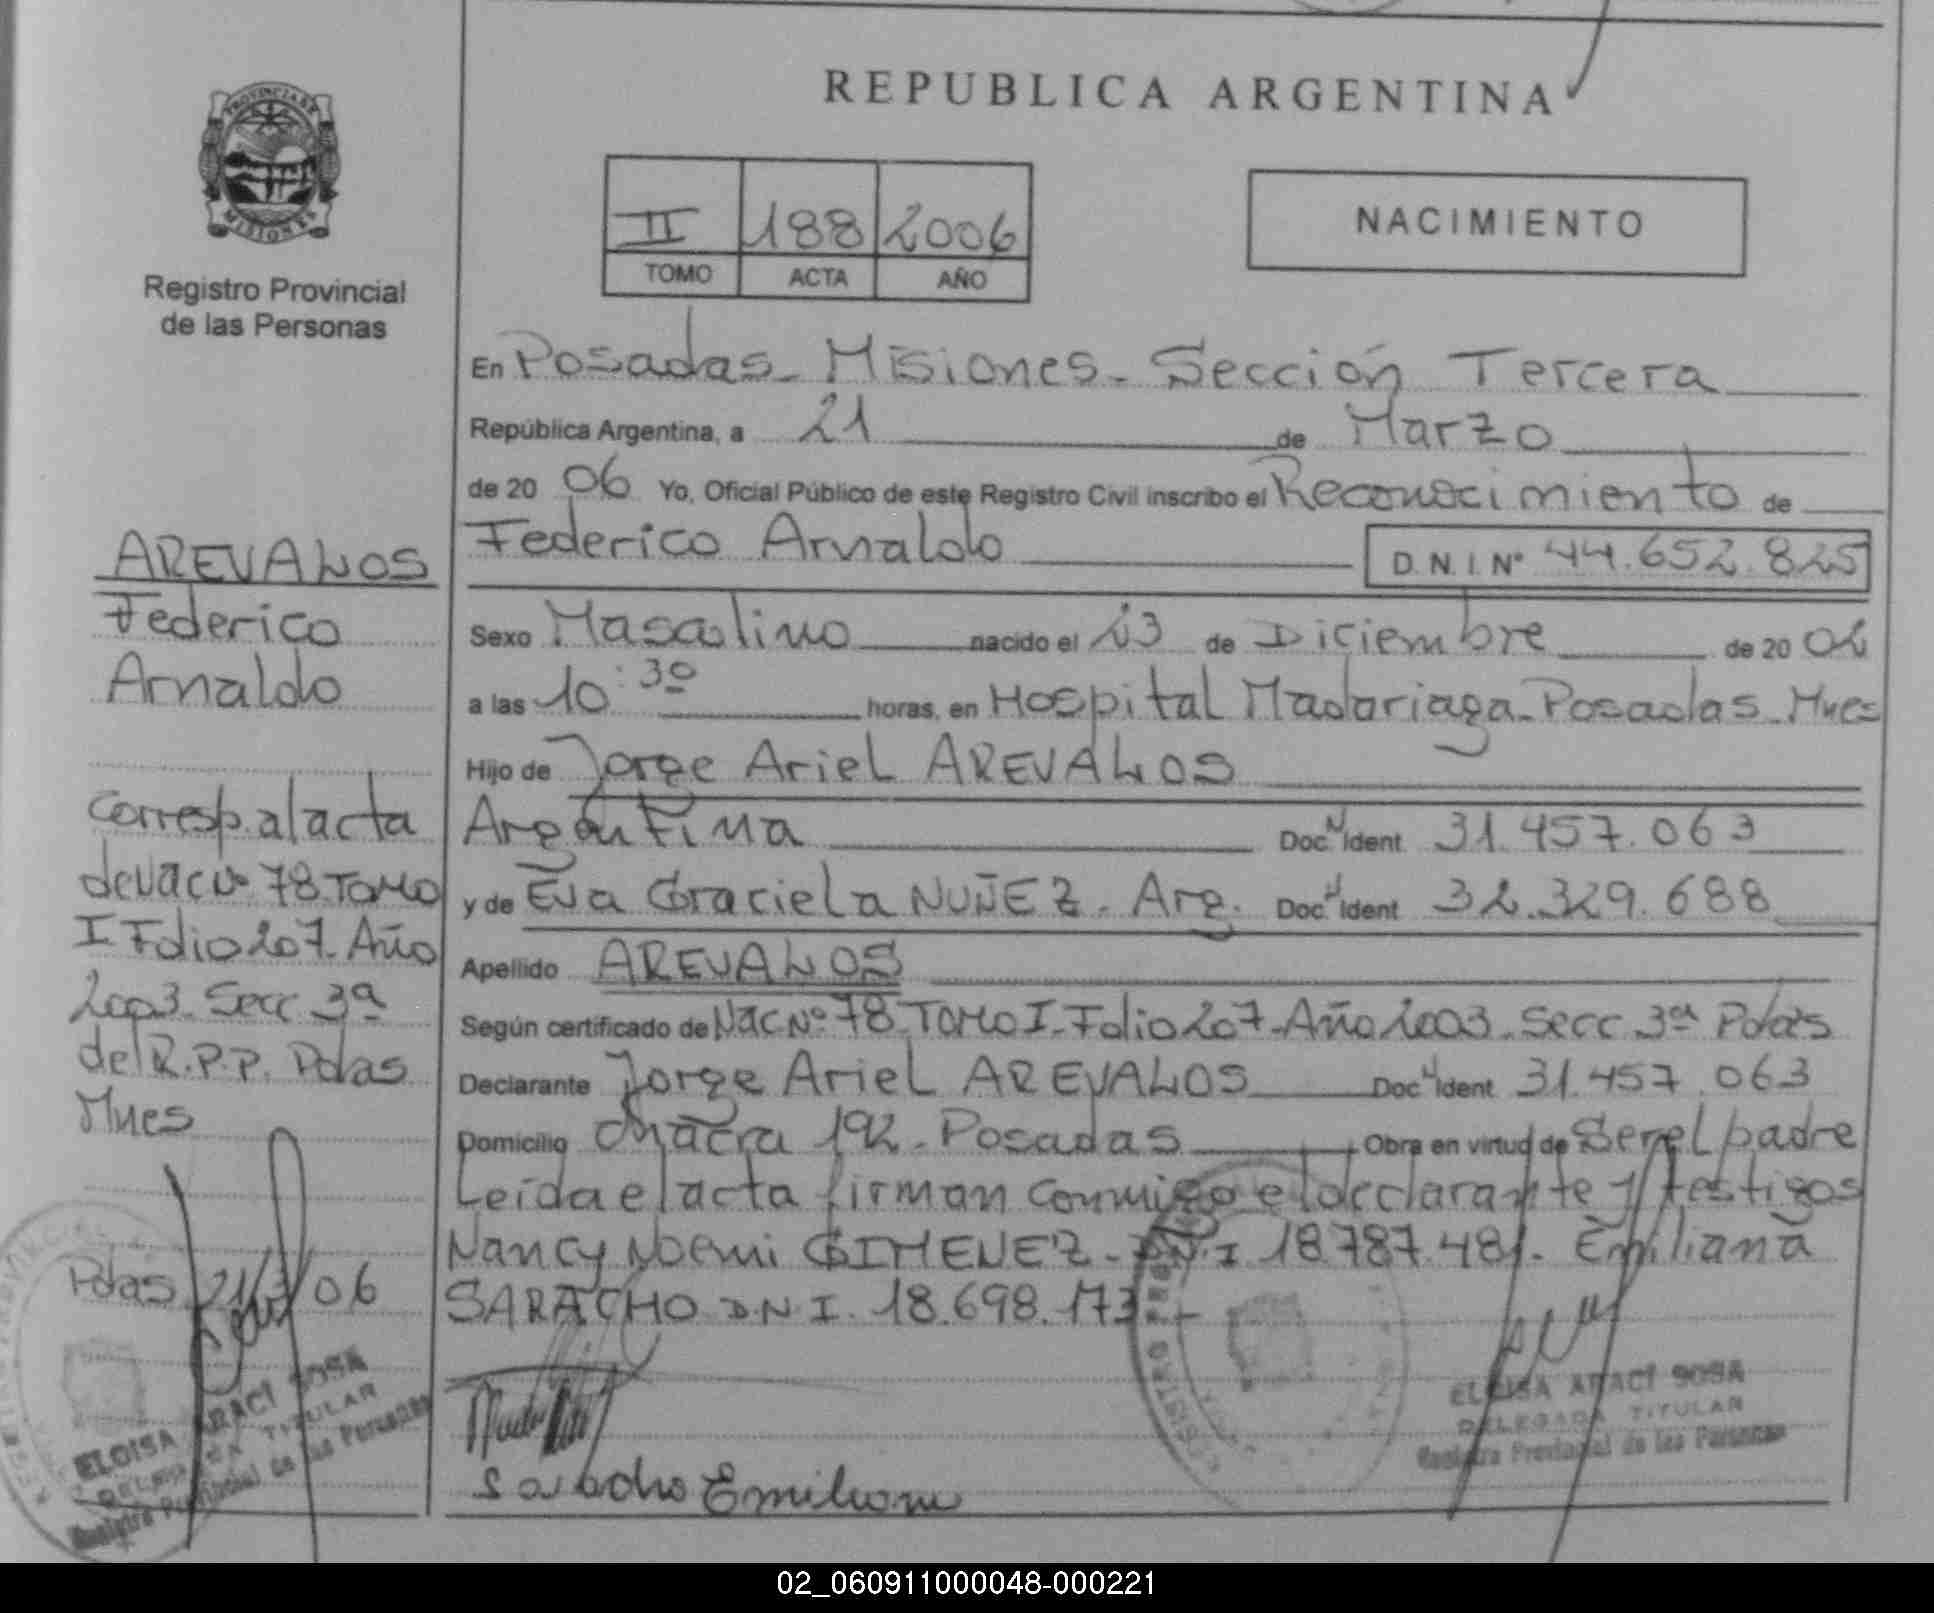 REPUBLICA ARGENTINA
PROVINCIA DE
MISIONES
Registro Provincial
de las Personas
II 188 2006
TOMO ACTA AÑO
NACIMIENTO
En Posadas - Misiones - Sección Tercera
República Argentina, a 21 de Marzo
de 20 06 Yo, Oficial Público de este Registro Civil inscribo el Reconocimiento de
Federico Arnaldo D.N.I.Nº 44.652.825
Sexo Masculino nacido el 23 de Diciembre de 20 02
a las 10:30 horas, en Hospital Madariaga - Posadas - Mnes
Hijo de Jorge Ariel AREVALOS
Argentina Doc. Ident. 31.457.063
y de Eva Graciela NUÑEZ - Arg. Doc. Ident. 32.329.688
Apellido AREVALOS
Según certificado de Nac Nº 78 - TOMO I - Folio 207 - Año 2003 - Secc 3ª Pdas
Declarante Jorge Ariel AREVALOS Doc. Ident. 31.457.063
Domicilio Chacra 192 - Posadas Obra en virtud de Ser el padre
Leída el acta firman conmigo el declarante y testigos
Nancy Noemi GIMENEZ - D.N.I 18.787.481 - Emiliana
SARACHO D.N.I. 18.698.173 -
Saracho Emiliana
ELOISA ARACI SOSA
DELEGADA TITULAR
Registro Provincial de las Personas
AREVALOS
Federico
Arnaldo
Corresp. al acta
de Nac Nº 78 TOMO
I Folio 207 - Año
2003 - Secc 3ª
del R.P.P. Pdas
Mnes
Pdas 21/3/06
ELOISA ARACI SOSA
DELEGADA TITULAR
Registro Provincial de las Personas
02_060911000048-000221